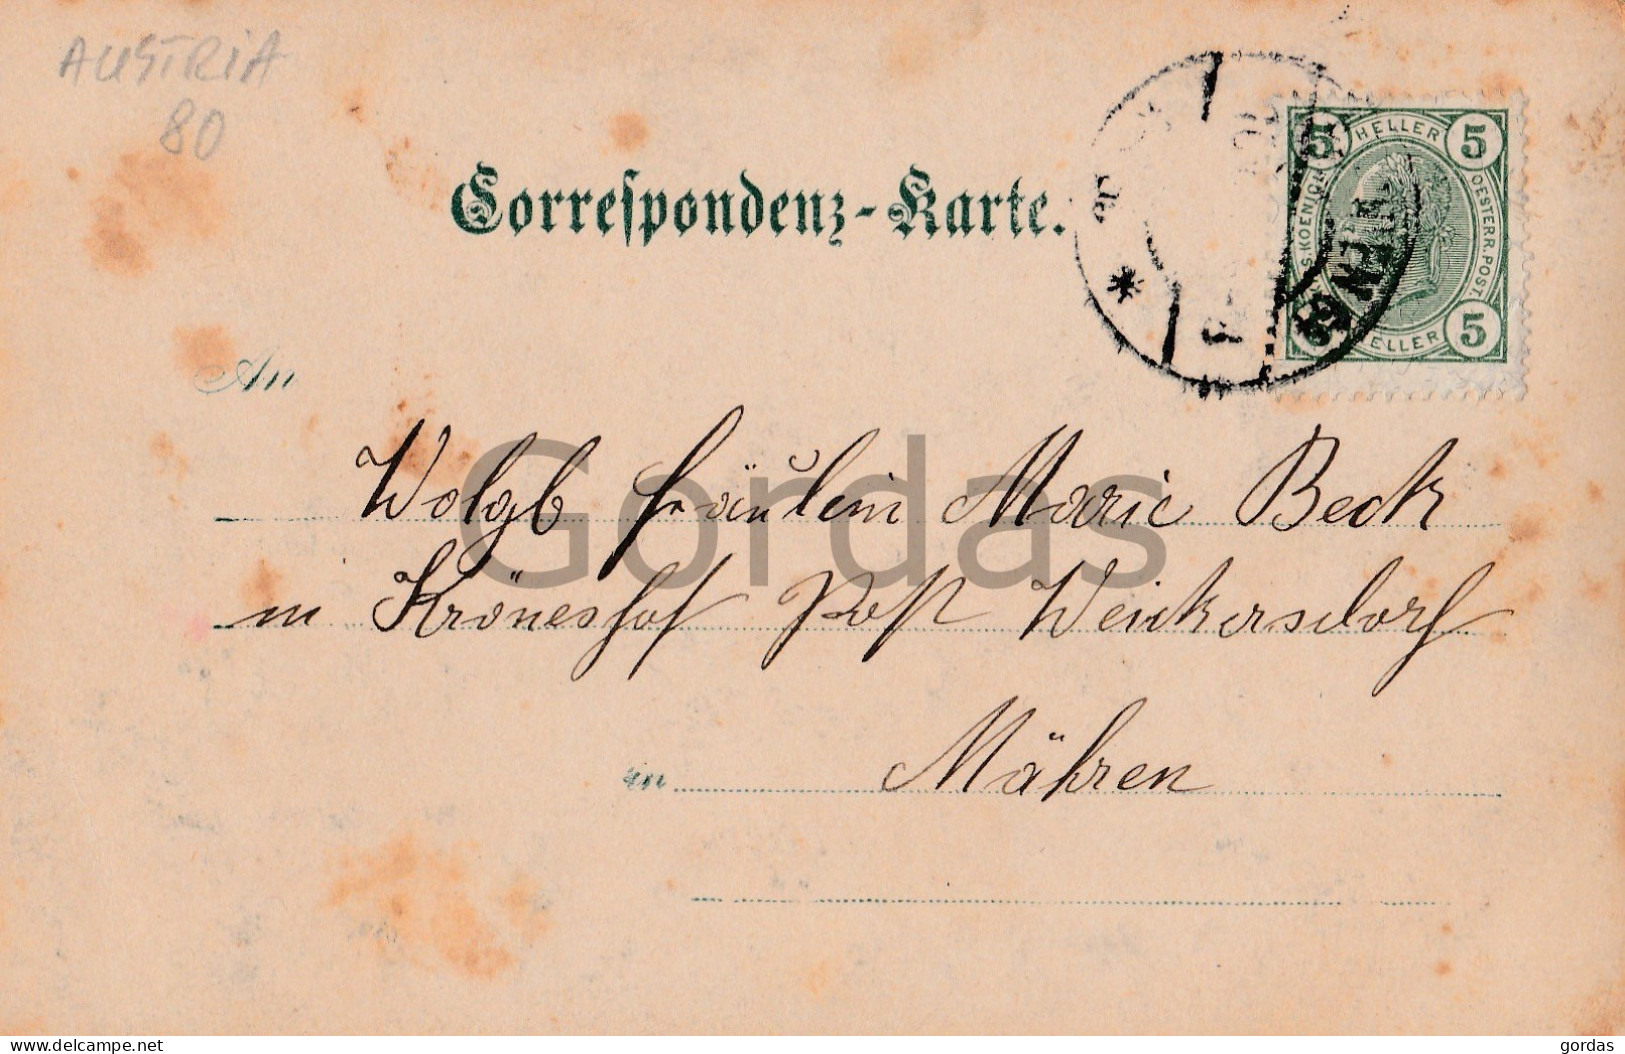 AUSTRIA
80
Correspondenz-Karte.
5 HELLER 5
K.S. KOENIGL. OESTERR. POST.
5 HELLER 5
An
Wolgb Fräulein Marie Beck
in Kröneshof Post Weickersdorf
in Mähren
Gordas
delcampe.net
gordas